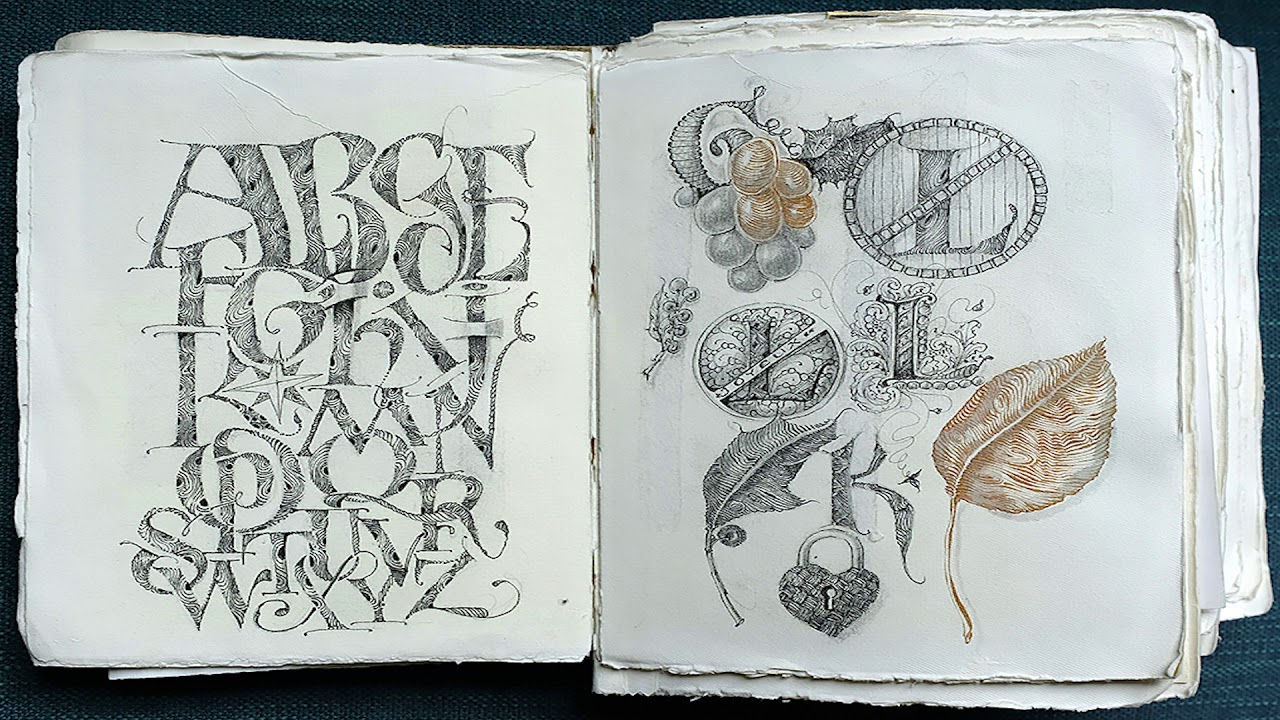 ABCDE
FGHIJ
KLMN
OPQR
STUV
WXYZ
L
L L
K